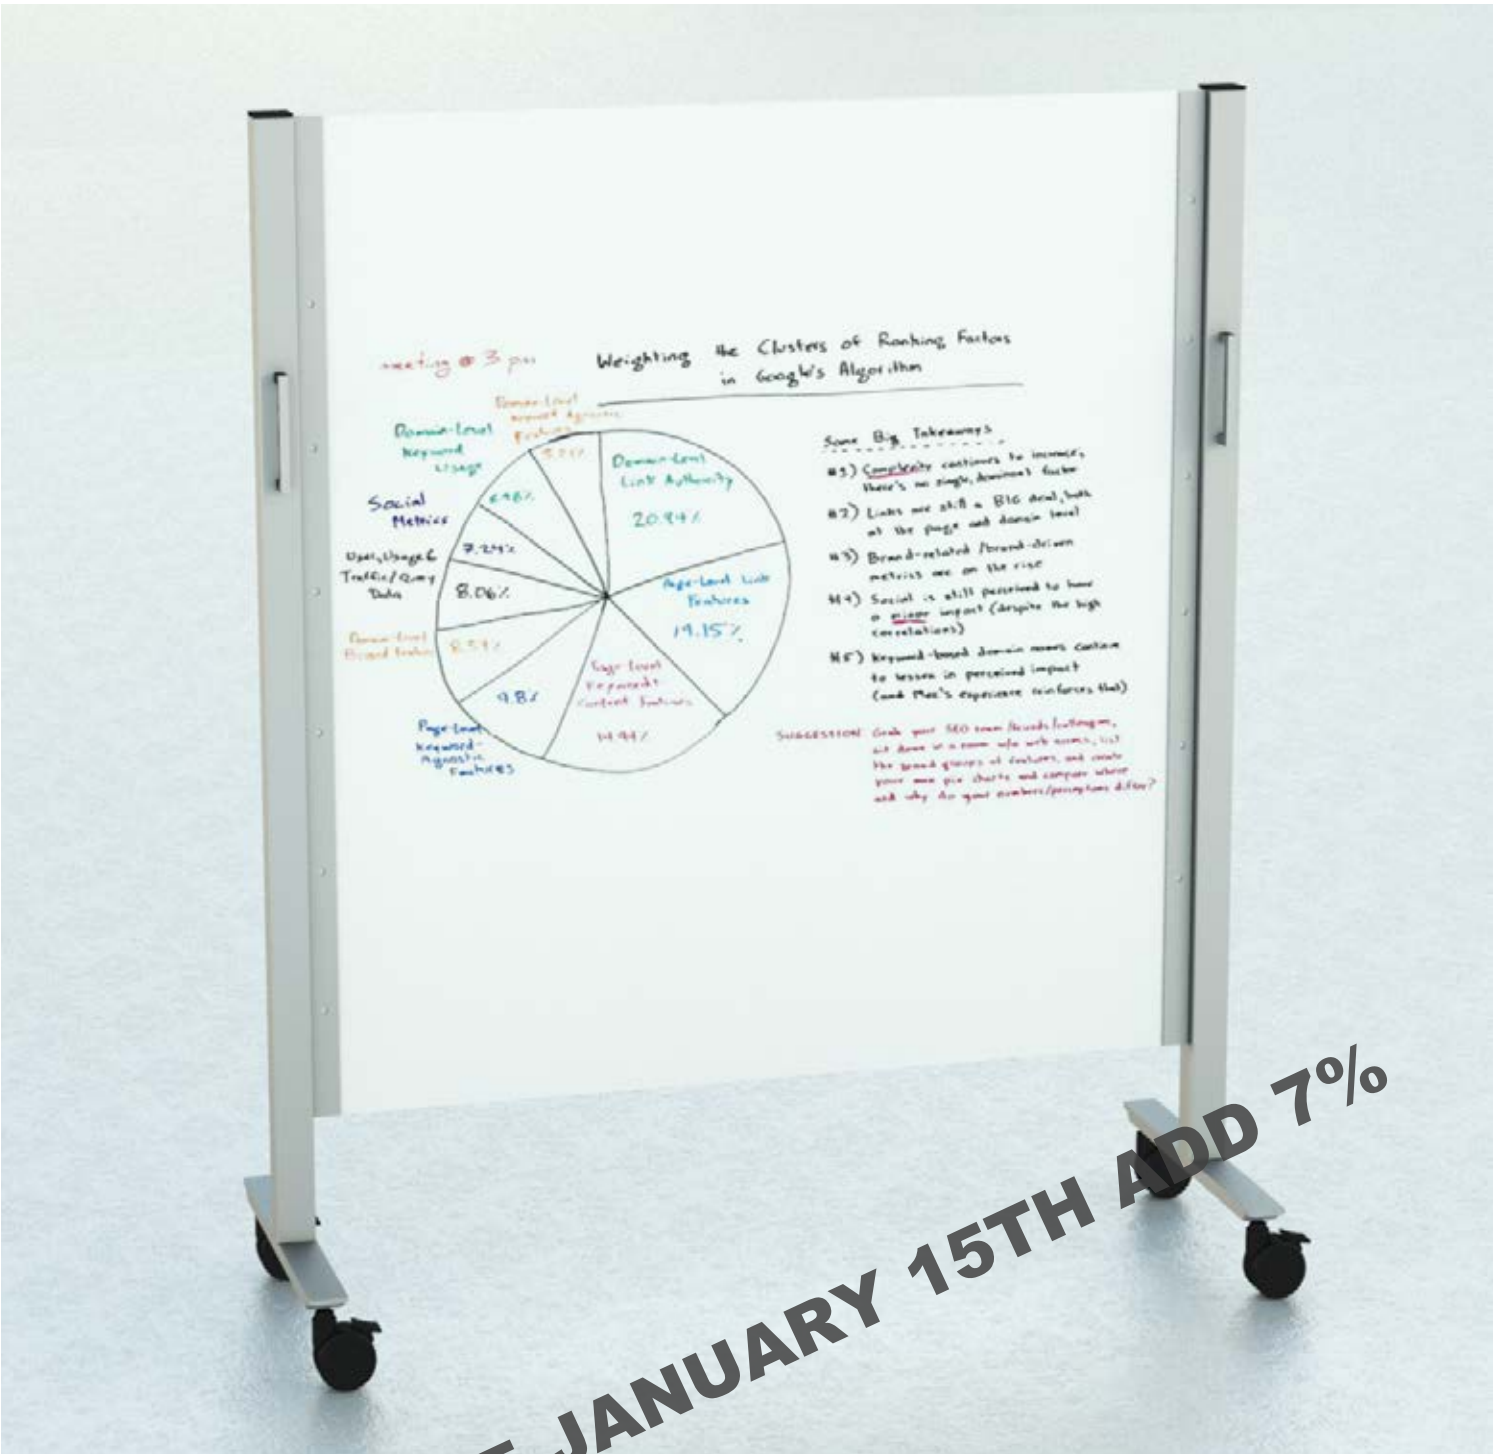 meeting @ 3 pm
Weighting the Clusters of Ranking Factors
in Google's Algorithm
Domain-Level
Features
Domain-Level
Keyword
Usage
Social
Metrics
7.24%
User, Usage &
Traffic/Query
Data
8.06%
Domain-Level
Brand
Page-Level
Keyword-
Agnostic
Features
9.8%
Page-Level
Keyword &
Content Features
14.94%
Page-Level Link
Features
19.15%
Domain-Level
Link Authority
20.94%
Some Big Takeaways
#1) Complexity continues to increase,
there's no single, dominant factor
#2) Links are still a BIG deal, both
at the page and domain level
#3) Brand-related/brand-driven
metrics are on the rise
#4) Social is still perceived to have
a minor impact (despite the high
correlations)
#5) Keyword-based domain names continue
to lessen in perceived impact
(and Moz's experience reinforces that)
SUGGESTION: Grab your SEO team/friends/colleagues,
sit down in a room w/o web access, list
the broad groups of features, and create
your own pie charts and compare where
and why do your numbers/perceptions differ?
JANUARY 15TH ADD 7%